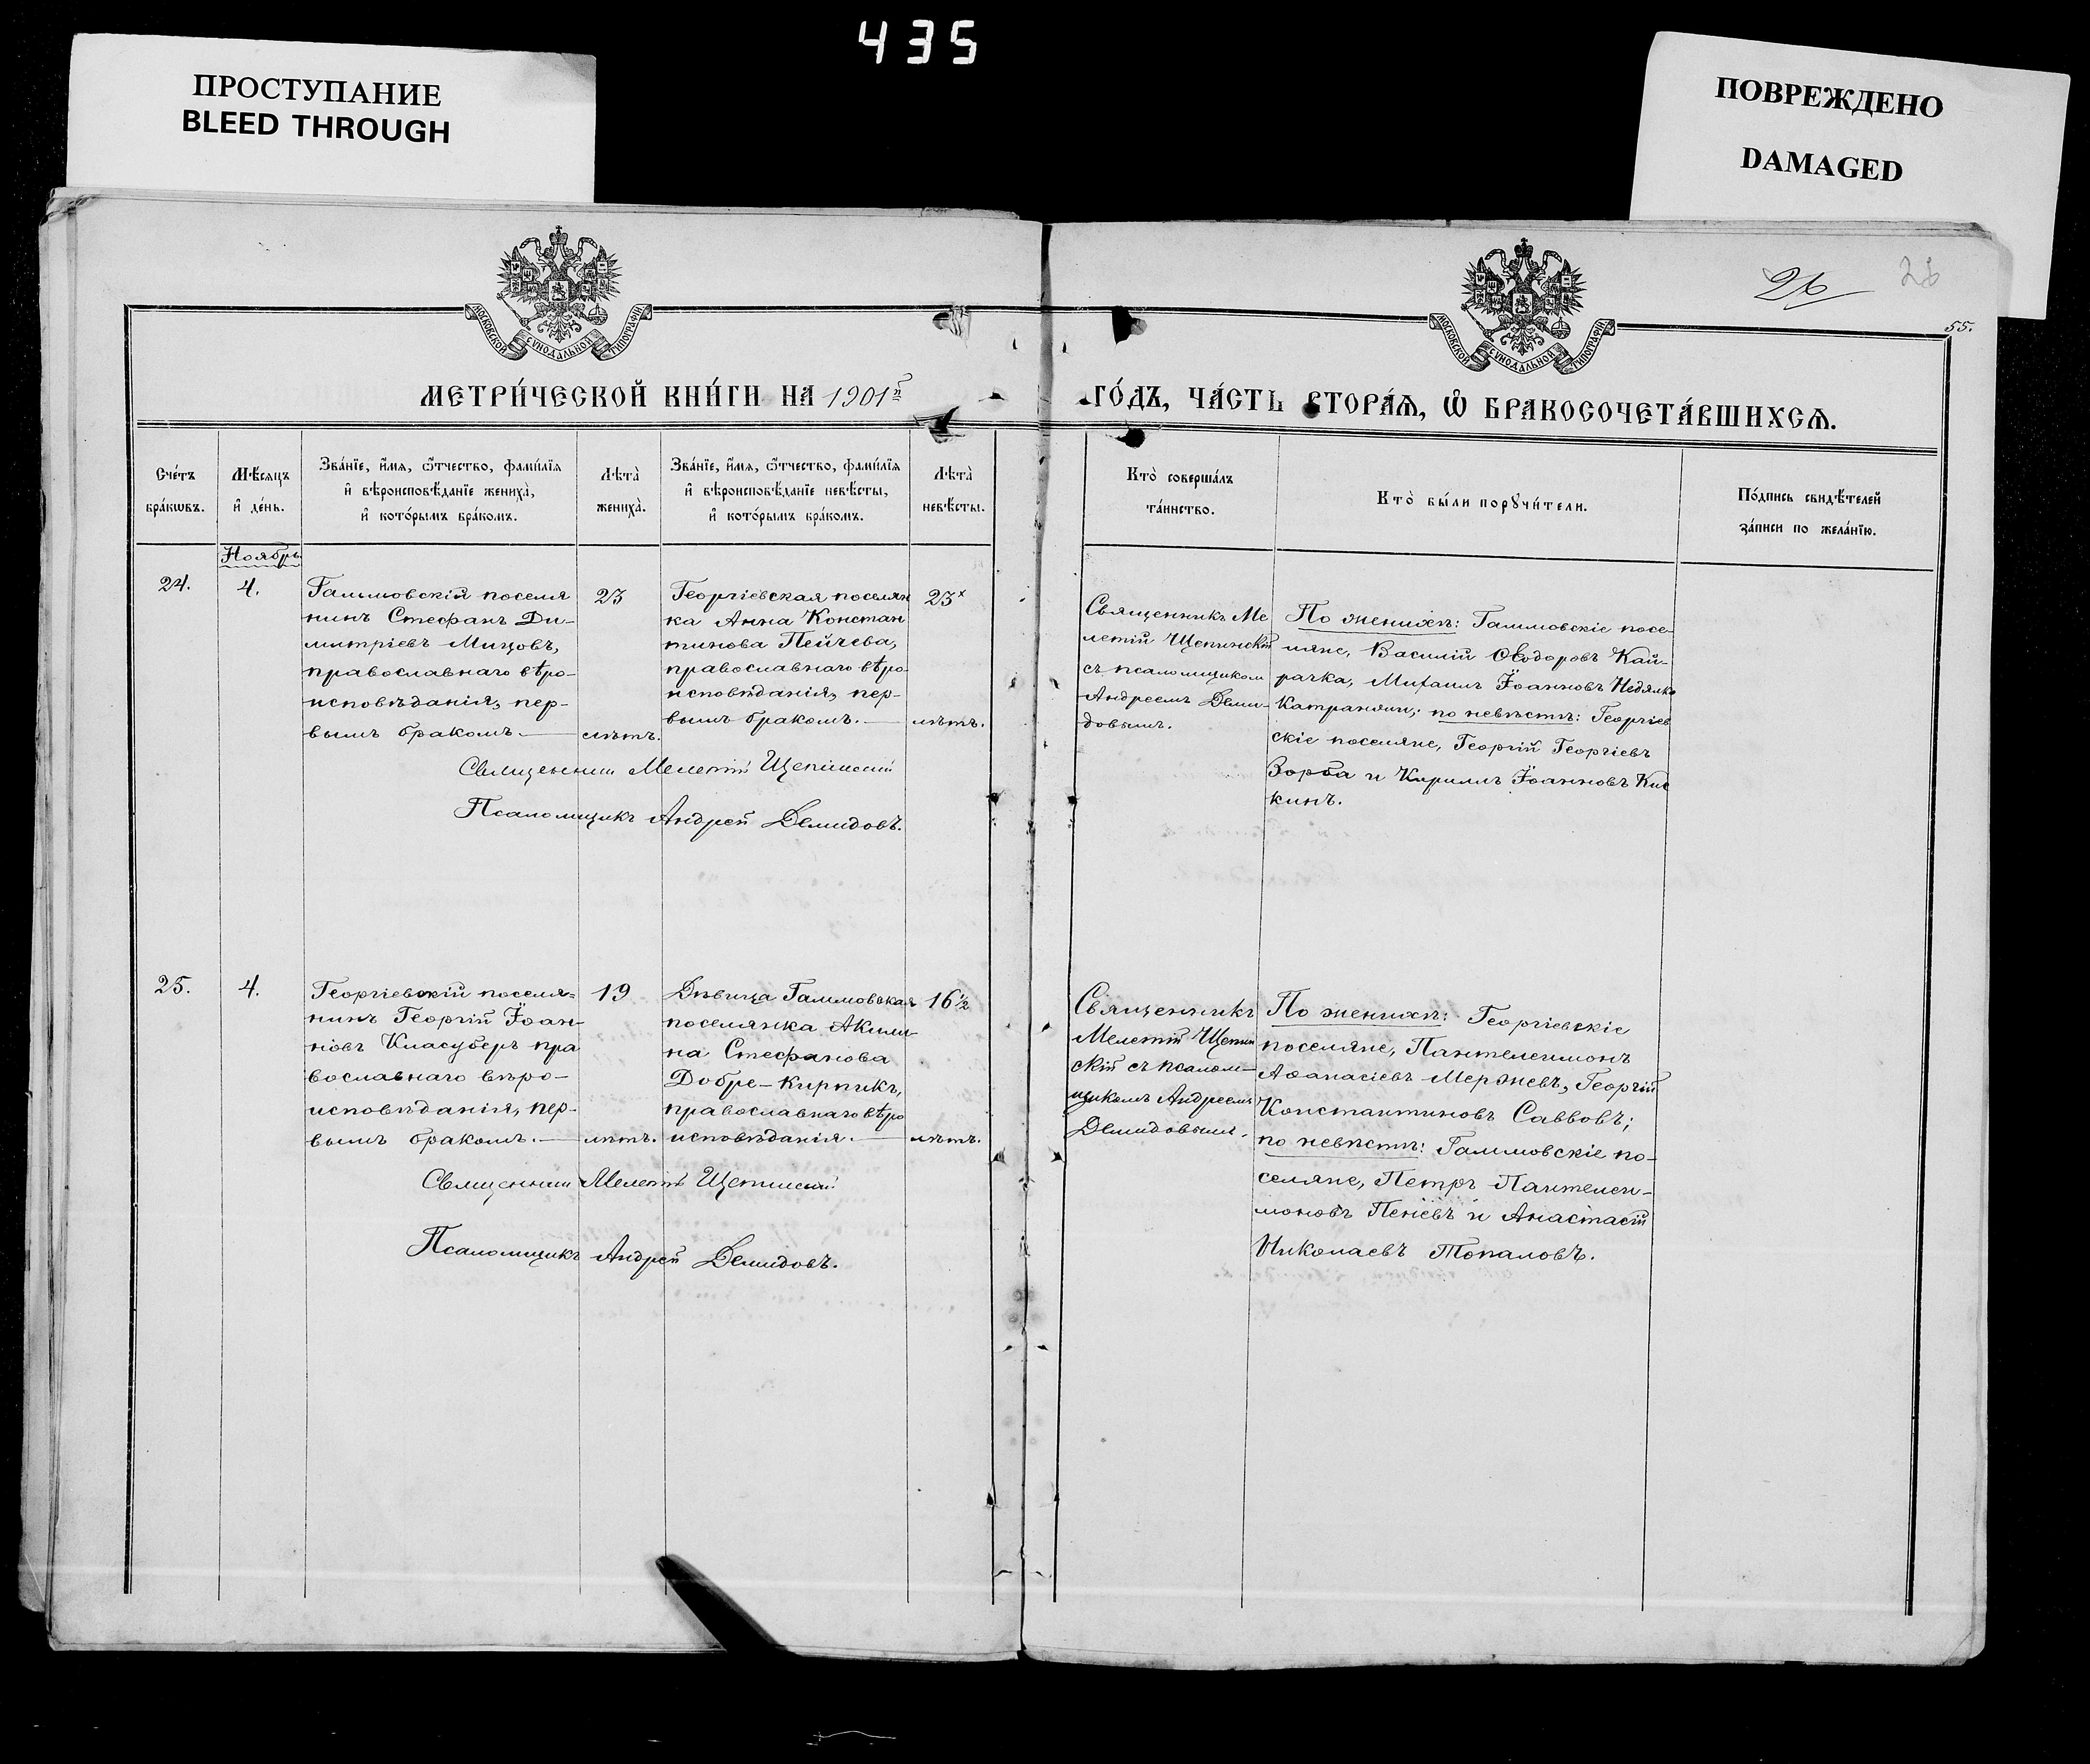 435
ПРОСТУПАНИЕ
BLEED THROUGH
ПОВРЕЖДЕНО
DAMAGED
26
26
55.
МОСКОВСКОЙ СѴНОДАЛЬНОЙ ТИПОГРАФІИ
МОСКОВСКОЙ СѴНОДАЛЬНОЙ ТИПОГРАФІИ
МЕТРИ́ЧЕСКОЙ КНИ́ГИ НА 1901й
ГО́ДЪ, ЧА́СТЬ ВТОРА́Ѧ, Ѡ҆ БРАКОСОЧЕТА́ВШИХСѦ.
Сче́тъ
бра́кѡвъ.
Мѣ́сѧцъ
и҆ де́нь.
Зва́нїе, и҆́мѧ, ѻ҆́тчество, фами́лїѧ
и҆ вѣроисповѣ́данїе жениха̀,
и҆ кото́рымъ бра́комъ.
Лѣта̀
жениха̀.
Зва́нїе, и҆́мѧ, ѻ҆́тчество, фами́лїѧ
и҆ вѣроисповѣ́данїе невѣ́сты,
и҆ кото́рымъ бра́комъ.
Лѣта̀
невѣ́сты.
Кто̀ соверша́лъ
та́инство.
Кто̀ бы́ли порꙋчи́тели.
По́дпись свидѣ́телей
за́писи по жела́нїю.
Ноябрь
24.
4.
Галмовскій поселя
нинъ Стефанъ Ди-
митріевъ Мицовъ,
православнаго вѣро-
исповѣданія, пер-
вымъ бракомъ.
23
лѣтъ.
Георгіевская поселян
ка Анна Констан
тинова Пейчева,
православнаго вѣро
исповѣданія, пер-
вымъ бракомъ.
23
лѣтъ.
Священникъ Ме
летій Щепинскій
съ псаломщикомъ
Андреемъ Деми-
довымъ.
По женихѣ: Галмовскіе посе-
ляне, Василій Ѳеодоровъ Кай-
рачка, Михаилъ Іоанновъ Недялко
Катранжи; по невѣстѣ: Георгіев
скіе поселяне, Георгій Георгіевъ
Зорба и Кириллъ Іоанновъ Кис
кинъ.
Священникъ Мелетій Щепинскій
Псаломщикъ Андрей Демидовъ.
25.
4.
Георгіевскій поселя-
нинъ Георгій Іоан-
новъ Класуберъ пра
вославнаго вѣро-
исповѣданія, пер-
вымъ бракомъ.
19
лѣтъ.
Дѣвица Галмовская
поселянка Акили-
на Стефанова
Добре-Кирпикъ,
православнаго вѣро
исповѣданія.
16½
лѣтъ.
Священникъ
Мелетій Щепин
скій съ псалом-
щикомъ Андреемъ
Демидовымъ.
По женихѣ: Георгіевскіе
поселяне, Пантелеимонъ
Аѳанасіевъ Мержевъ, Георгій
Константиновъ Саввовъ;
по невѣстѣ: Галмовскіе по-
селяне, Петръ Пантелеи-
моновъ Пеневъ и Анастасій
Николаевъ Топаловъ.
Священникъ Мелетій Щепинскій
Псаломщикъ Андрей Демидовъ.